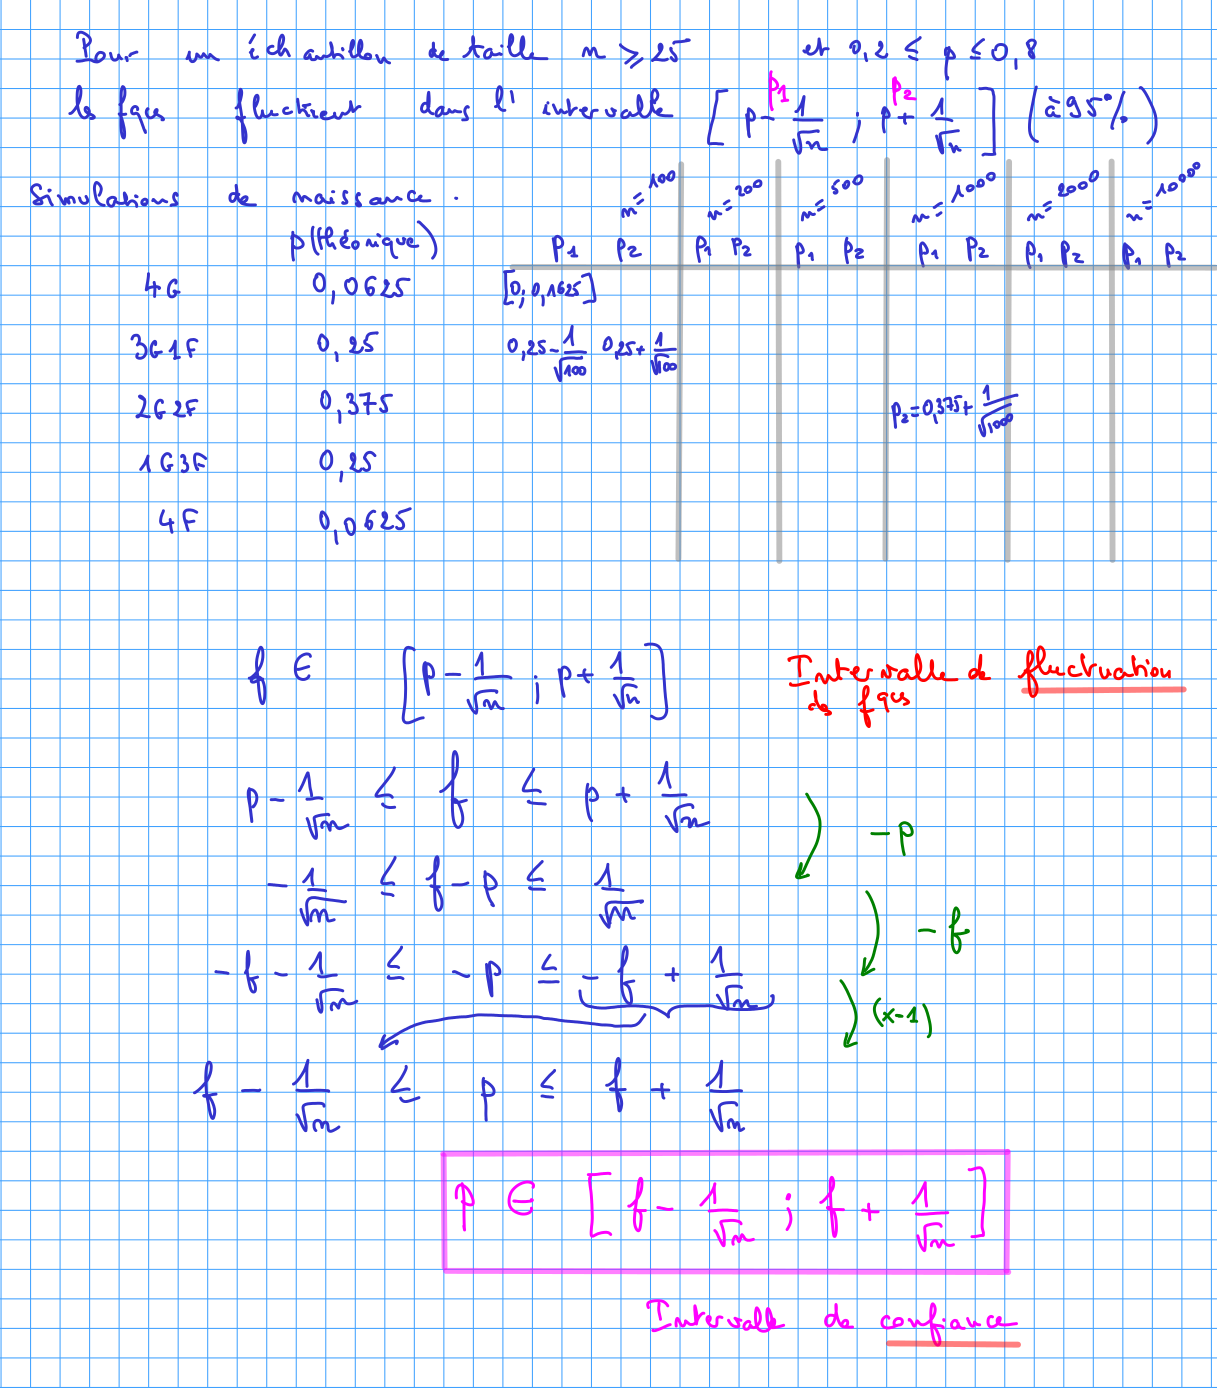 Pour un échantillon de taille n ⩾ 25 et 0,2 ≤ p ≤ 0,8
les fqces fluctuent dans l'intervalle [ p - 1/√n ; p + 1/√n ] (à 95%)
p1 p2
Simulations de naissance .
n=100 n=200 n=500 n=1000 n=2000 n=10000
p(théorique) p1 p2 p1 p2 p1 p2 p1 p2 p1 p2 p1 p2
4G 0,0625 [0; 0,1625]
3G1F 0,25 0,25 - 1/√100 0,25 + 1/√100
2G2F 0,375 p2 = 0,375 + 1/√1000
1G3F 0,25
4F 0,0625
f ∈ [ p - 1/√n ; p + 1/√n ] Intervalle de fluctuation
des fqces
p - 1/√n ≤ f ≤ p + 1/√n
-p
-1/√n ≤ f - p ≤ 1/√n
-f
-f - 1/√n ≤ -p ≤ -f + 1/√n
(x-1)
f - 1/√n ≤ p ≤ f + 1/√n
p ∈ [ f - 1/√n ; f + 1/√n ]
Intervalle de confiance